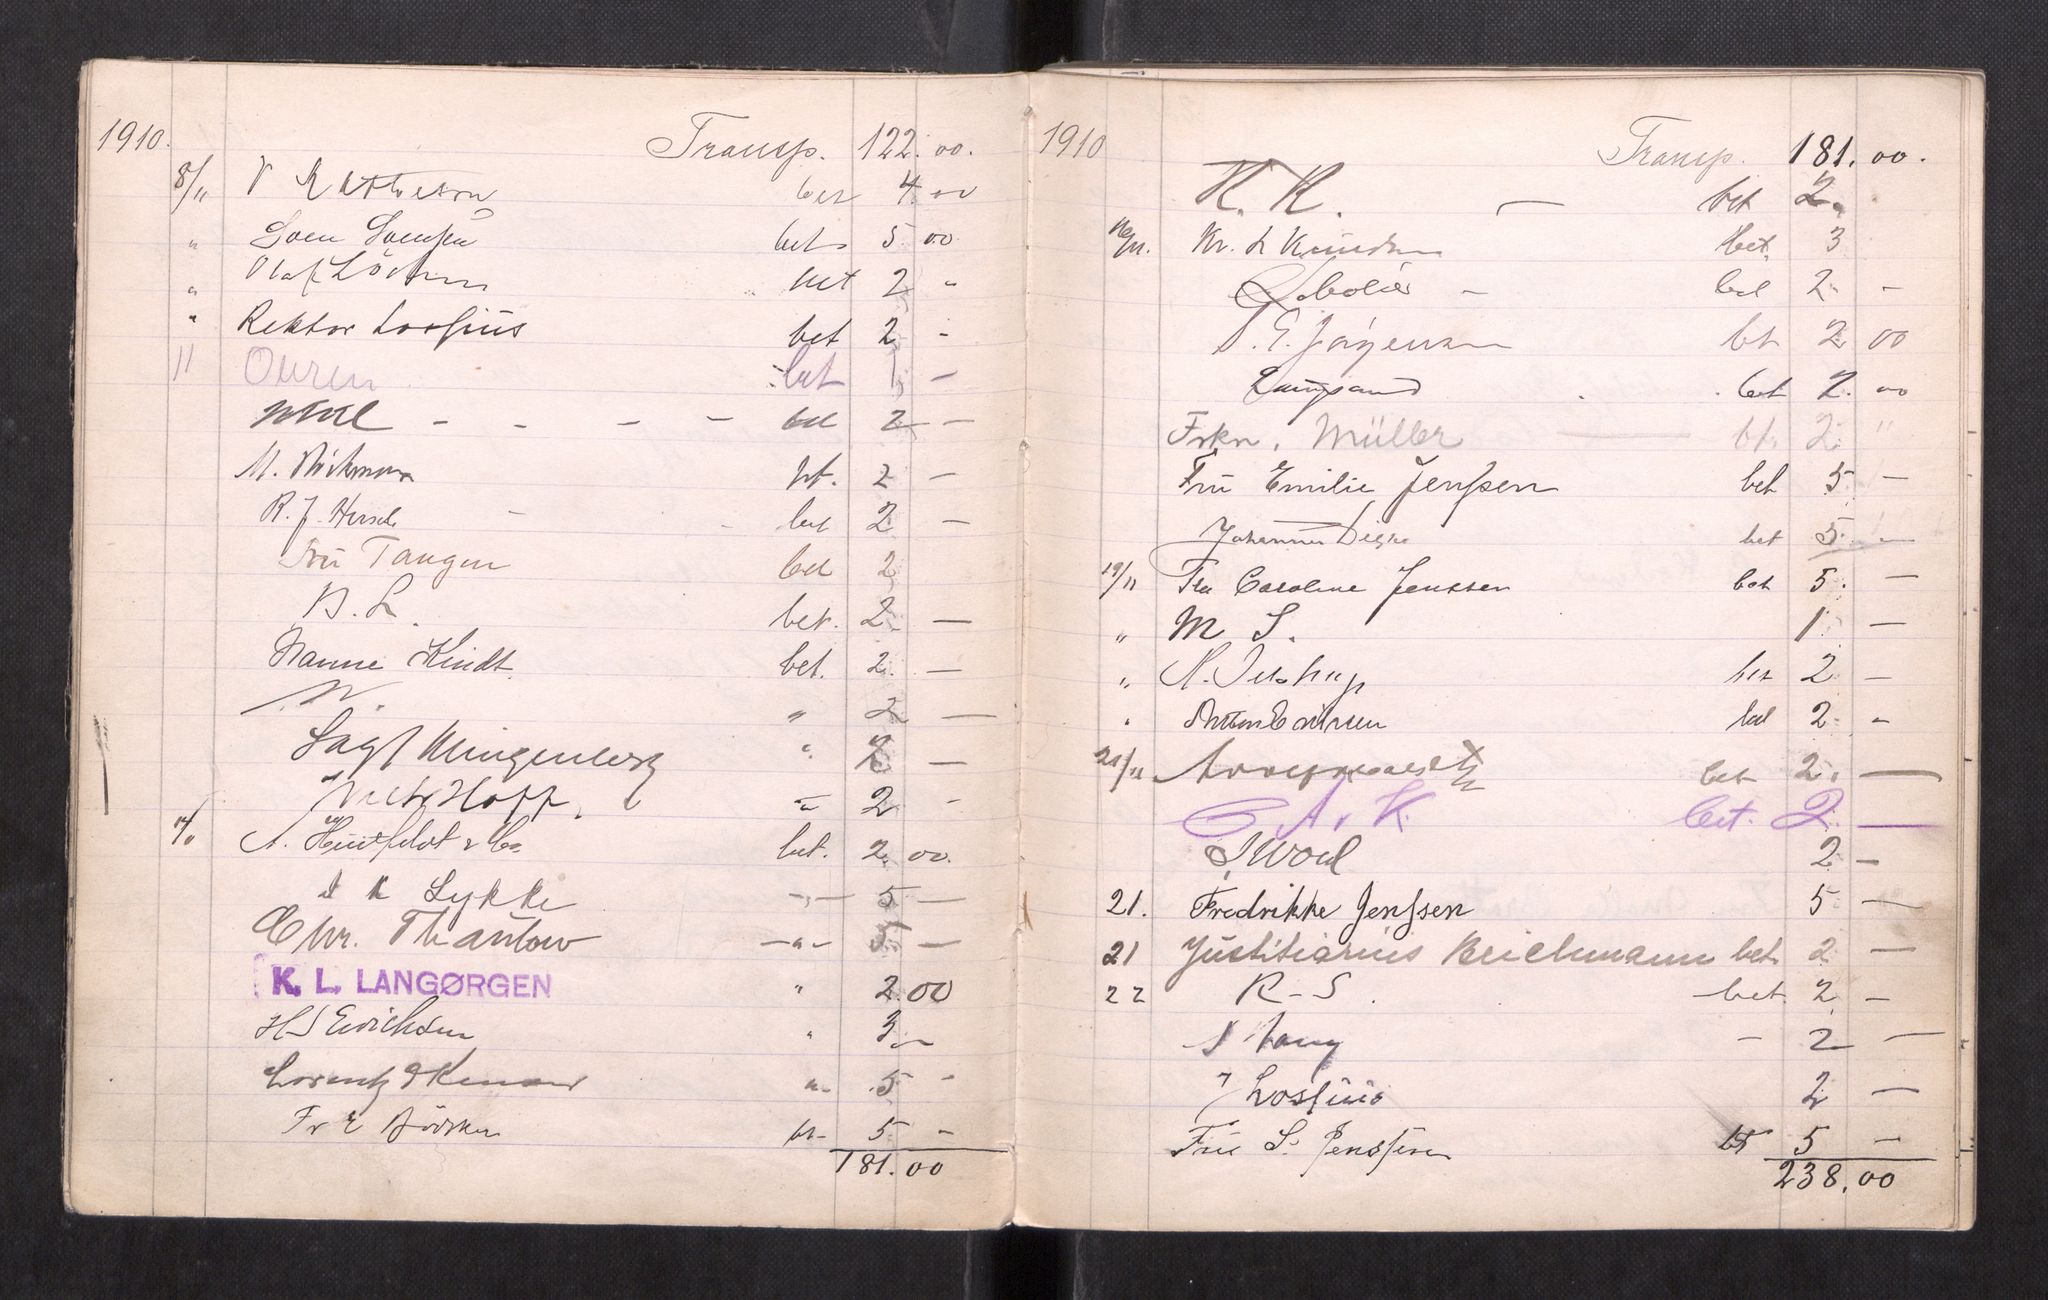 1910. Transp. 122.00.
8/11 V Matheson bet 4 00
" Sven Svensen bet 5 00
" Olaf Löchen bet 2 "
" Rektor Lossius bet 2 -
11 Ouren bet 1 -
bet 2 -
M. bt. 2 -
R. J. Hersch - bet 2 -
Fru Tangen bet 2
B. L. bet. 2 -
Hanne Kindt bet. 2. -
N. " 2 -
Sagf Klingenberg " 2 -
Hoff " 2 -
A. Huitfeldt & Co bet. 2.00.
I K Lykke -"- 5 -
Chr. Thaulow -"- 5 -
K. L. LANGØRGEN " 2.00
H S Erichsen " 3 -
Lorentz " 5 -
Fr E bt- 5 -
181.00
1910 Transp. 181.00.
K. K. - bet 2.
16/11. Kr. L Knudsen bet. 3
- bet 2 -
E. Jörgensen bt 2 00
Langsand bet 2. 00
Frkn. Müller bt. 2 "
Fru Emilie Jenssen bet 5 -
Johannes bet 5 -
19/11 Fru Caroline Jenssen bet 5. -
" M S. 1 -
" N. bet 2 -
" Anton bet 2 -
21/11 bet 2. -
A. K. bet. 2. -
2 -
21. Fredrikke Jenssen 5 -
21 Justitiarius Reichmann bet. 2 -
22 R-S. bet. 2 -
- 2 -
" Lossius 2 -
Frue S. Jenssen bt 5 -
238.00